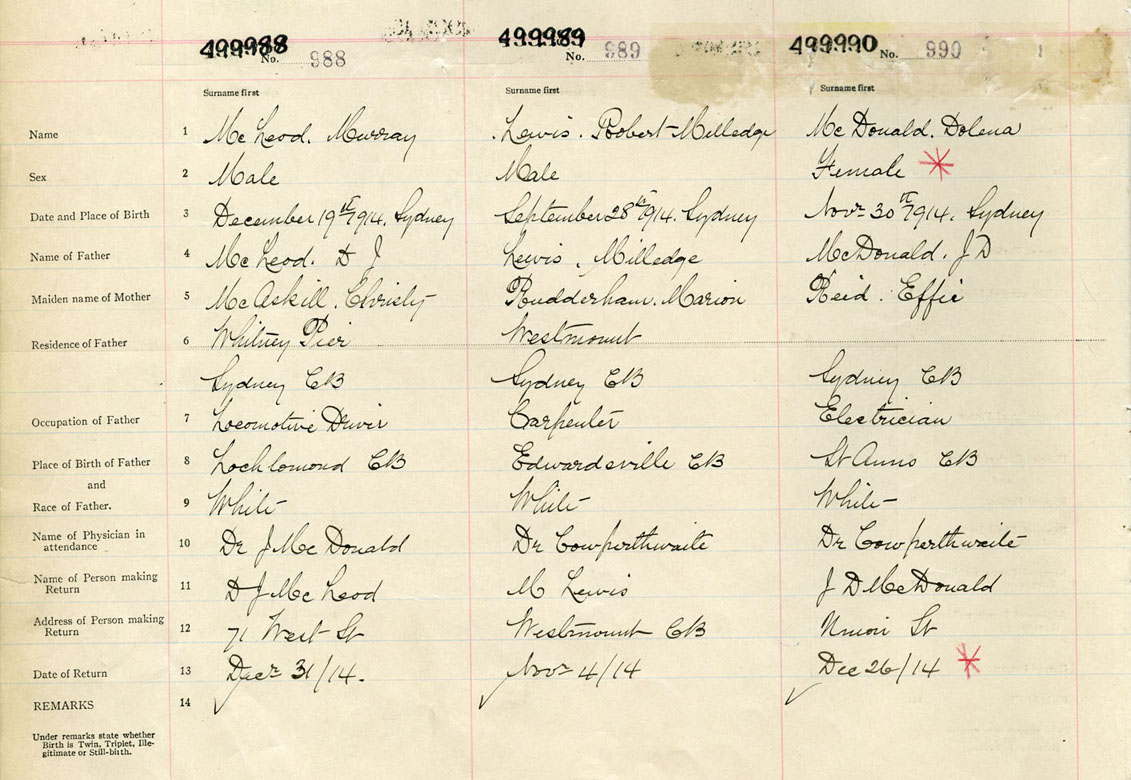 499988 No. 988 499989 No. 989 499990 No. 990
Surname first Surname first Surname first
Name 1 McLeod. Murray Lewis. Robert-Milledge McDonald. Dolena
Sex 2 Male Male Female
Date and Place of Birth 3 December 19th 1914. Sydney September 28th 1914. Sydney Novr 30th 1914. Sydney
Name of Father 4 McLeod. D J Lewis. Milledge McDonald. J D
Maiden name of Mother 5 McAskill. Christy Rudderham. Marion Reid. Effie
Residence of Father 6 Whitney Pier Westmount
Sydney CB Sydney CB Sydney CB
Occupation of Father 7 Locomotive Driver Carpenter Electrician
Place of Birth of Father 8 Lochlomond CB Edwardsville CB St Anns CB
and
Race of Father. 9 White White White
Name of Physician in
attendance 10 Dr J McDonald Dr Cowperthwaite Dr Cowperthwaite
Name of Person making
Return 11 D J McLeod M Lewis J D McDonald
Address of Person making
Return 12 71 West St Westmount CB Union St
Date of Return 13 Decr 31/14. Novr 4/14 Dec 26/14
REMARKS 14
Under remarks state whether
Birth is Twin, Triplet, Ille-
gitimate or Still-birth.